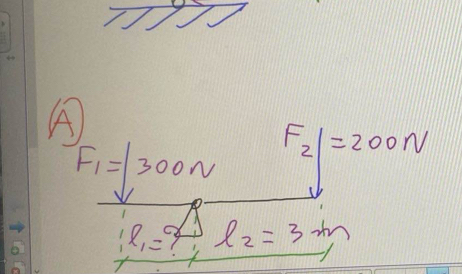 A)
F₁ = 300N
F₂ = 200N
l₁ = ? l₂ = 3 m